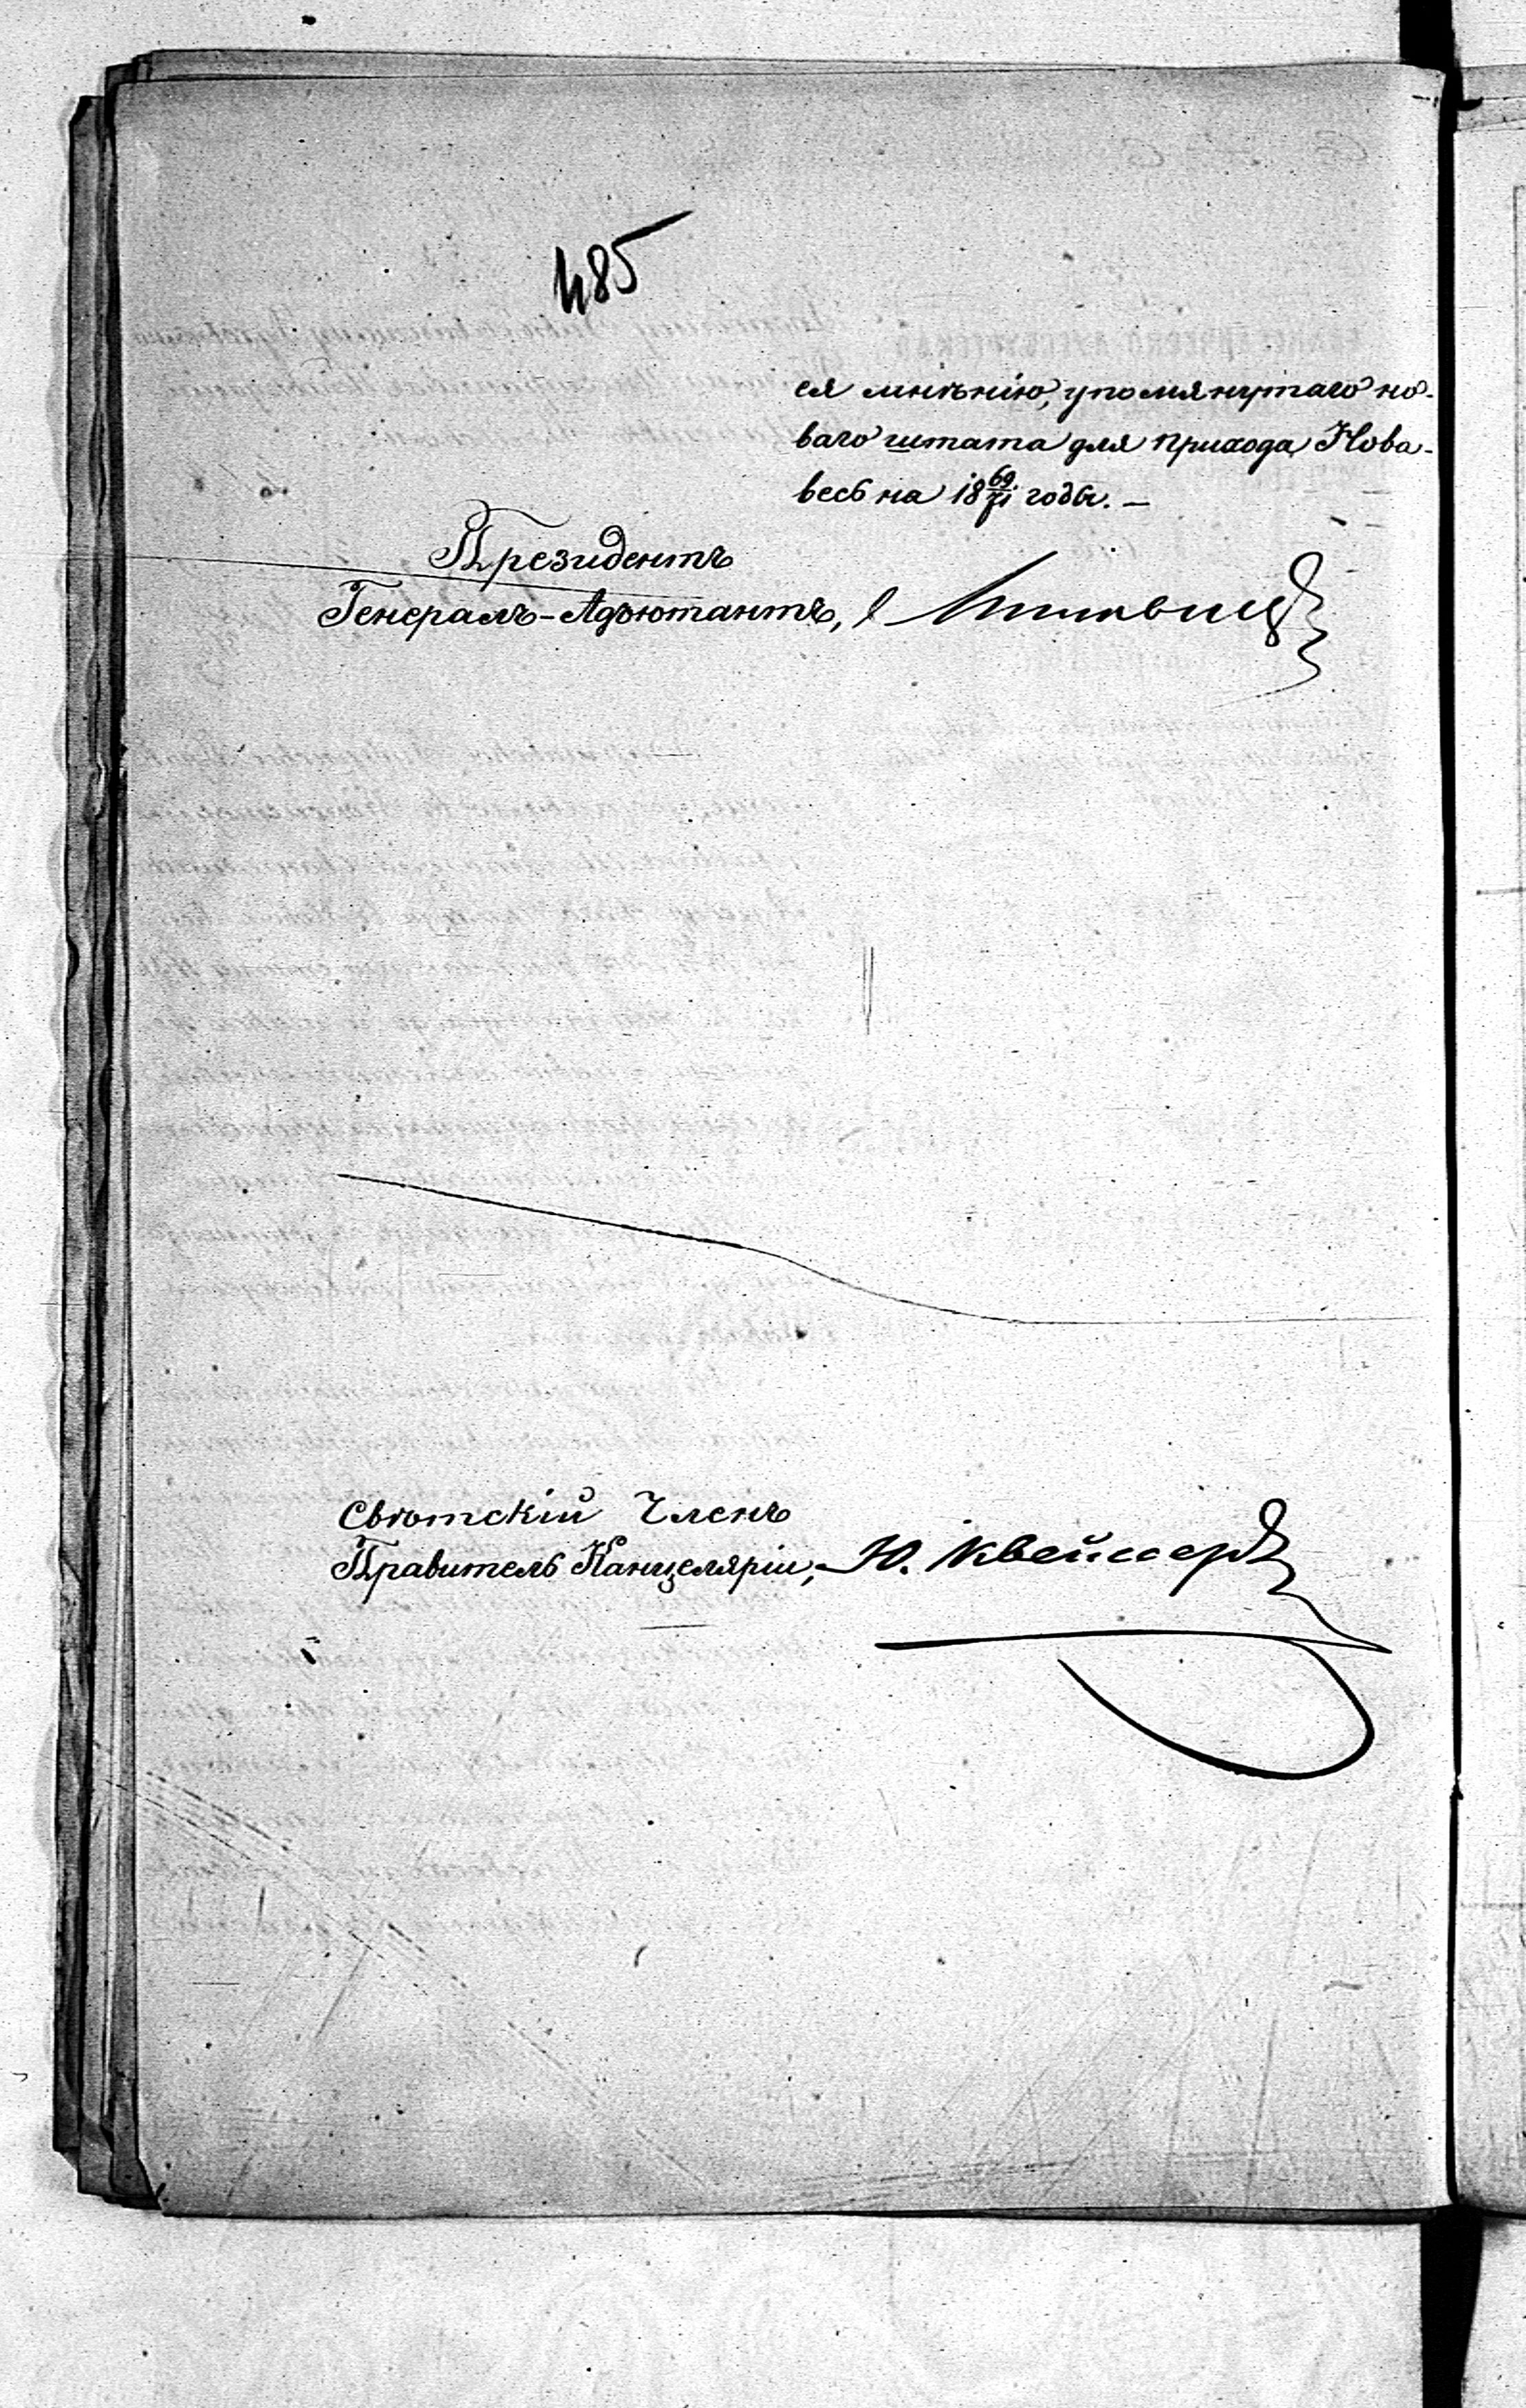 485
ея мнѣнію, упомянутаго но-
ваго штата для прихода Нова-
весь на 18 69/71 годы. —
Президентъ
Генералъ-Адъютантъ,
Свѣтскій Членъ
Правитель Канцеляріи, Ю. Квейссеръ